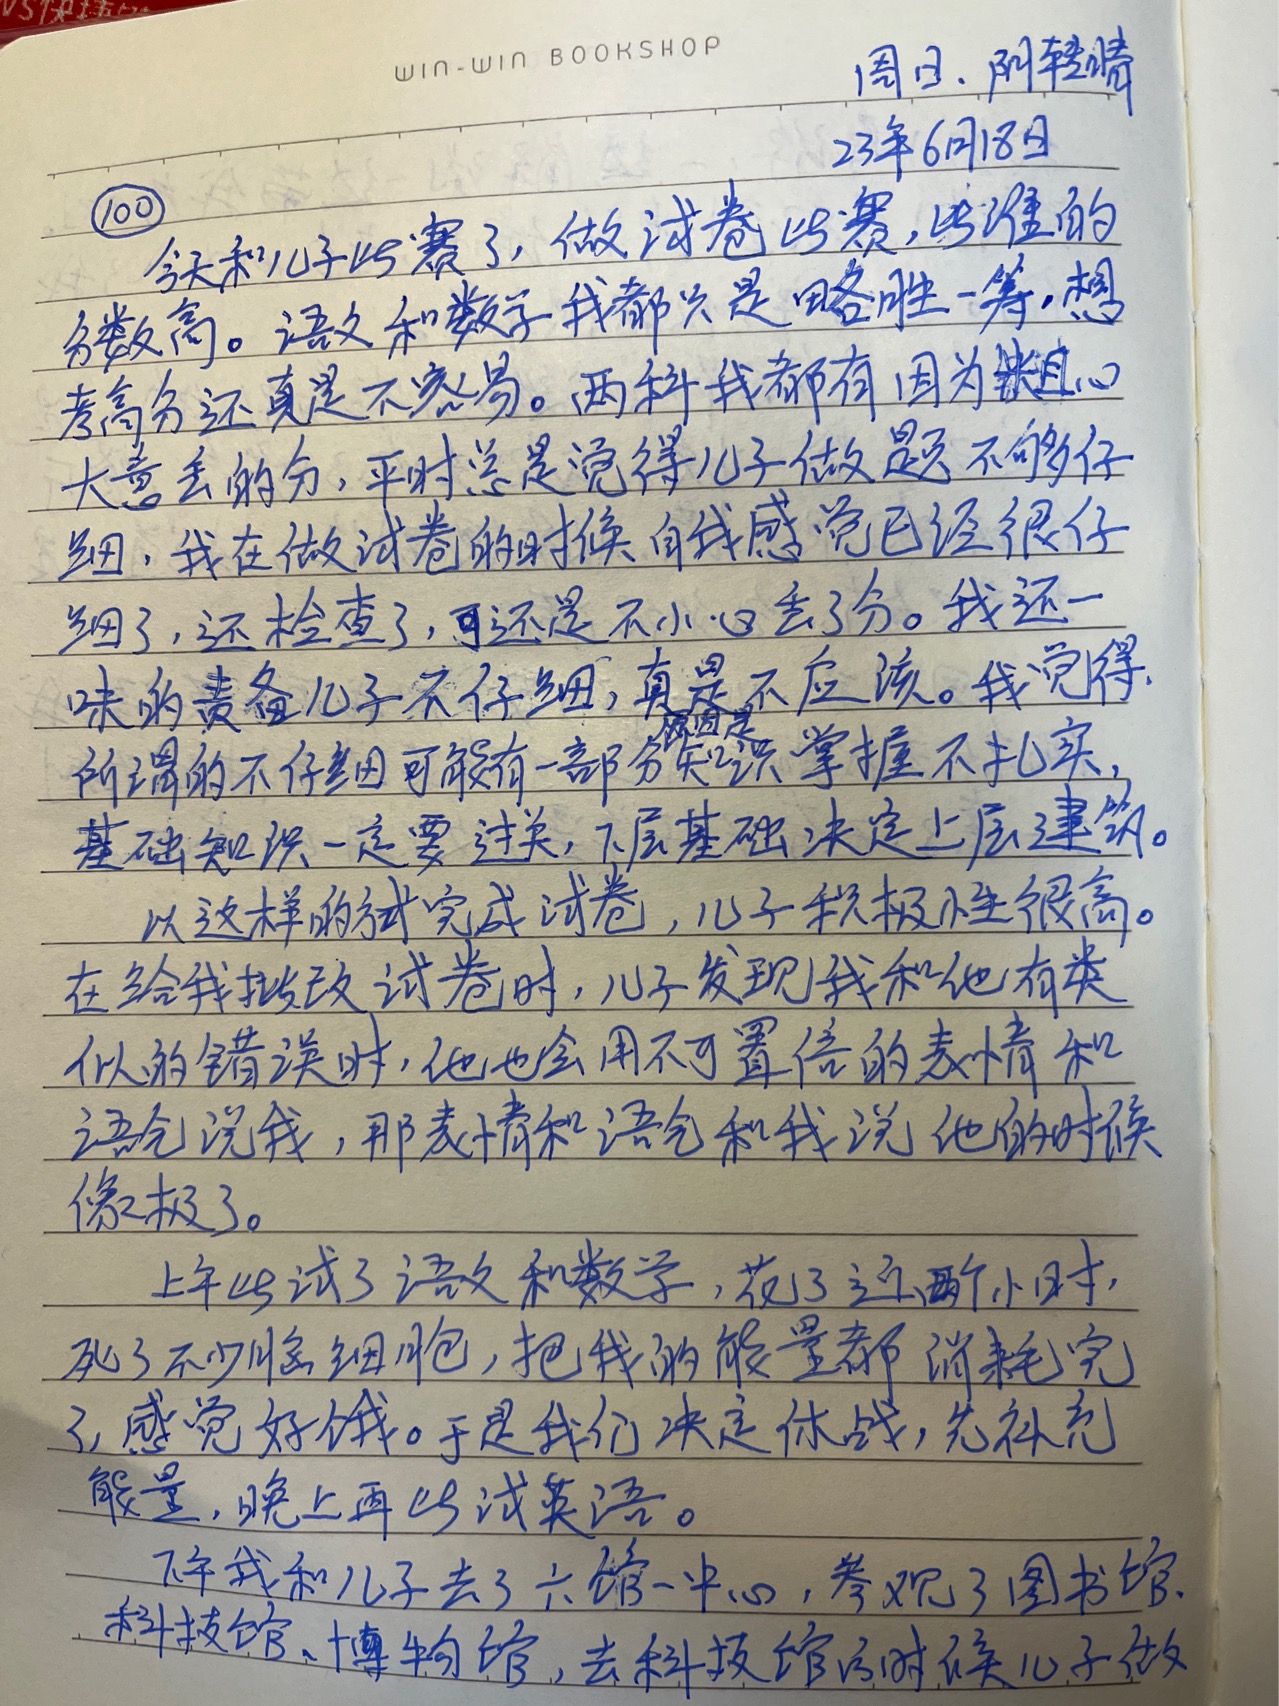 WIN-WIN BOOKSHOP
周日、阴转晴
23年6月18日
100
今天和儿子比赛了，做试卷比赛，比谁的
分数高。语文和数学我都只是略胜一筹，想
考高分还真是不容易。两科我都有因为粗心
大意丢的分，平时总是觉得儿子做题不够仔
细，我在做试卷的时候自我感觉已经很仔
细了，还检查了，可还是不小心丢了分。我还一
味的责备儿子不仔细，真是不应该。我觉得，
所谓的不仔细可能有一部分原因是知识掌握不扎实，
基础知识一定要过关，下层基础决定上层建筑。
以这样的方式完成试卷，儿子积极性很高。
在给我批改试卷时，儿子发现我和他有类
似的错误时，他也会用不可置信的表情和
语气说我，那表情和语气和我说他的时候
像极了。
上午比试了语文和数学，花了近两个小时，
死了不少脑细胞，把我的能量都消耗完
了，感觉好饿。于是我们决定休战，先补充
能量，晚上再比试英语。
下午我和儿子去了六馆一中心，参观了图书馆、
科技馆、博物馆，去科技馆的时候儿子做